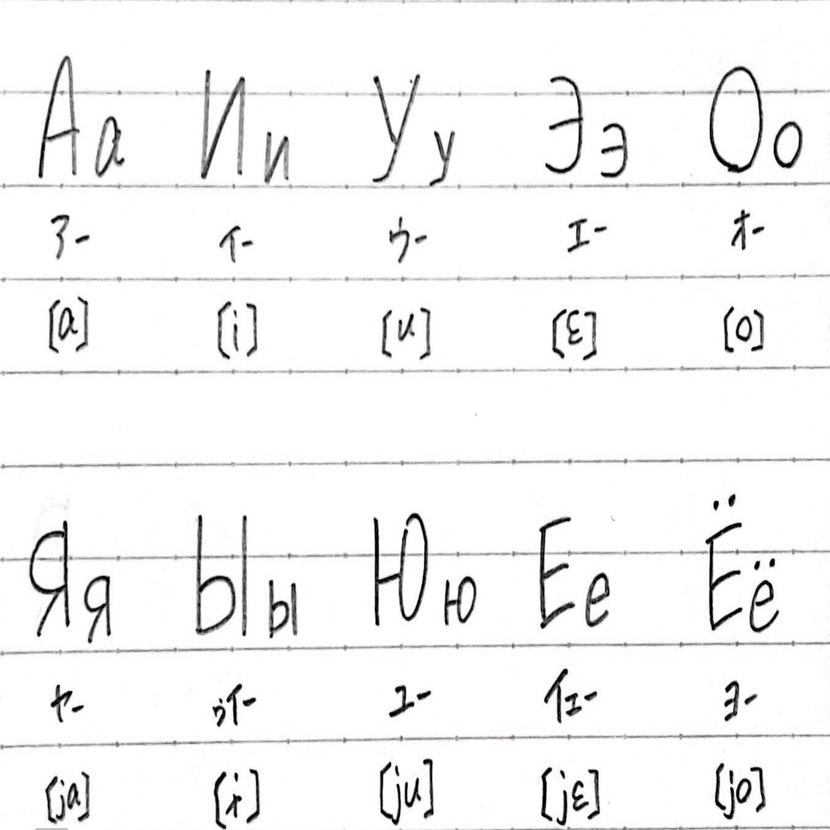 Аа Ии Уу Ээ Оо
アー イー ウー エー オー
[a] [i] [u] [ɛ] [o]
Яя Ыы Юю Ее Ёё
ヤー ゥイー ユー イェー ヨー
[ja] [ɨ] [ju] [jɛ] [jo]